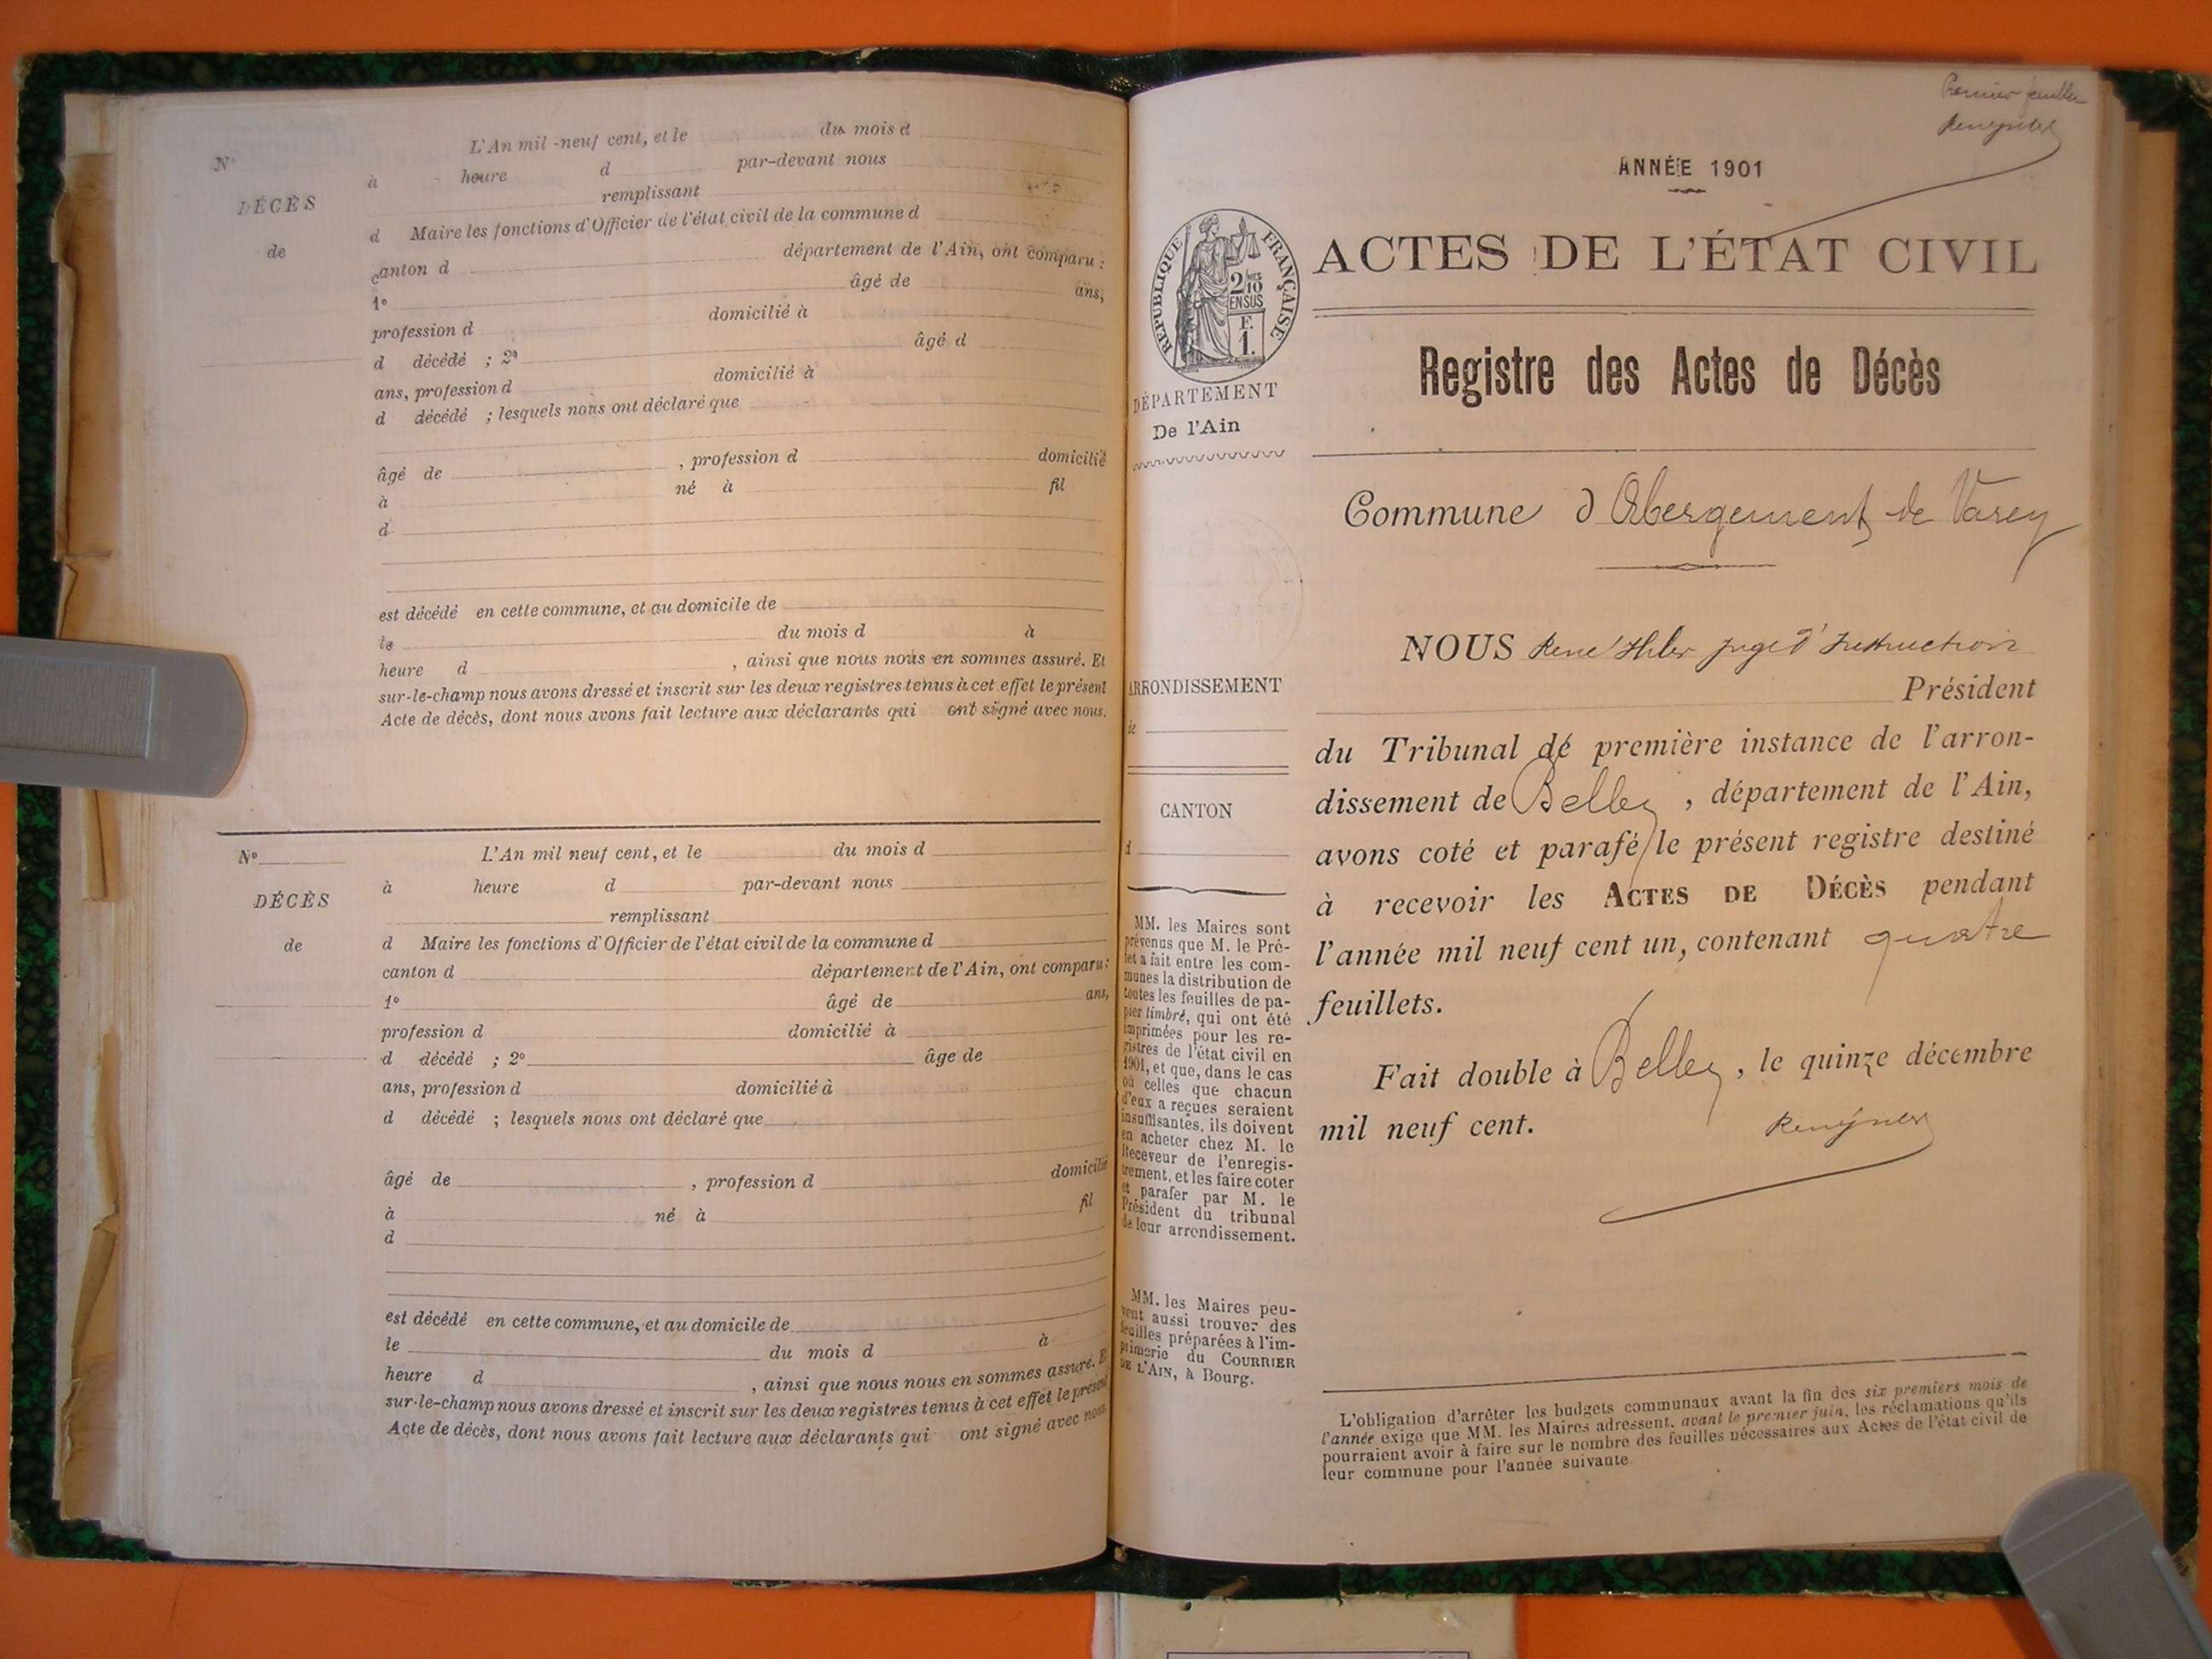 N°
DÉCÈS
de
L'An mil -neuf cent, et le du mois d
à heure d par-devant nous
remplissant
d Maire les fonctions d'Officier de l'état civil de la commune d
canton d département de l'Ain, ont comparu :
1° âgé de ans,
profession d domicilié à
d décédé ; 2° âgé d
ans, profession d domicilié à
d décédé ; lesquels nous ont déclaré que
âgé de , profession d domicilié
à né à fil
d
est décédé en cette commune, et au domicile de
le du mois d à
heure d , ainsi que nous nous en sommes assuré. Et
sur-le-champ nous avons dressé et inscrit sur les deux registres tenus à cet effet le présent
Acte de décès, dont nous avons fait lecture aux déclarants qui ont signé avec nous.
N°
DÉCÈS
de
L'An mil neuf cent, et le du mois d
à heure d par-devant nous
remplissant
d Maire les fonctions d'Officier de l'état civil de la commune d
canton d département de l'Ain, ont comparu:
1° âgé de ans,
profession d domicilié à
d décédé ; 2° âge de
ans, profession d domicilié à
d décédé ; lesquels nous ont déclaré que
âgé de , profession d domicilié
à né à fil
d
est décédé en cette commune, et au domicile de
le du mois d à
heure d , ainsi que nous nous en sommes assuré. E
sur-le-champ nous avons dressé et inscrit sur les deux registres tenus à cet effet le présen
Acte de décès, dont nous avons fait lecture aux déclarants qui ont signé avec nous
Premier feuillet
ANNÉE 1901
RÉPUBLIQUE FRANÇAISE
2/10
EN SUS
F.
1.
ACTES DE L'ÉTAT CIVIL
Registre des Actes de Décès
DÉPARTEMENT
De l'Ain
Commune d'Abergement de Varey
ARRONDISSEMENT
de
CANTON
d
MM. les Maires sont
prévenus que M. le Pré-
fet a fait entre les com-
munes la distribution de
toutes les feuilles de pa-
pier timbré, qui ont été
imprimées pour les re-
gistres de l'état civil en
1901, et que, dans le cas
où celles que chacun
d'eux a reçues seraient
insuffisantes, ils doivent
en acheter chez M. le
Receveur de l'enregis-
trement, et les faire coter
et parafer par M. le
Président du tribunal
de leur arrondissement.
MM. les Maires peu-
vent aussi trouver des
feuilles préparées à l'im-
primerie du COURRIER
DE L'AIN, à Bourg.
NOUS René juge d'Instruction
Président
du Tribunal de première instance de l'arron-
dissement de Belley, département de l'Ain,
avons coté et parafé le présent registre destiné
à recevoir les ACTES DE DÉCÈS pendant
l'année mil neuf cent un, contenant quatre
feuillets.
Fait double à Belley, le quinze décembre
mil neuf cent.
L'obligation d'arrêter les budgets communaux avant la fin des six premiers mois de
l'année exige que MM. les Maires adressent, avant le premier juin, les réclamations qu'ils
pourraient avoir à faire sur le nombre des feuilles nécessaires aux Actes de l'état civil de
leur commune pour l'année suivante